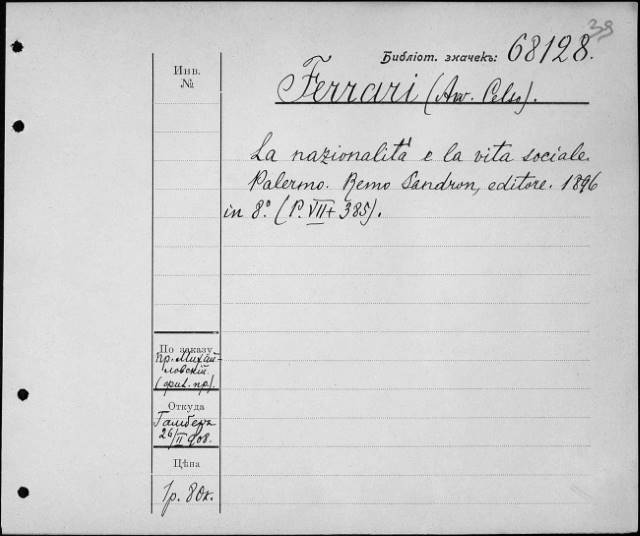 39
Библіот. значекъ: 68128.
Инв.
№
Ferrari (Avv. Celso).
La nazionalità e la vita sociale.
Palermo. Remo Sandron, editore. 1896
in 8.° (P. VII + 385).
По заказу
пр. Михай-
ловскій
(фил. пр).
Откуда
26/II 908.
Цѣна
1р. 80к.